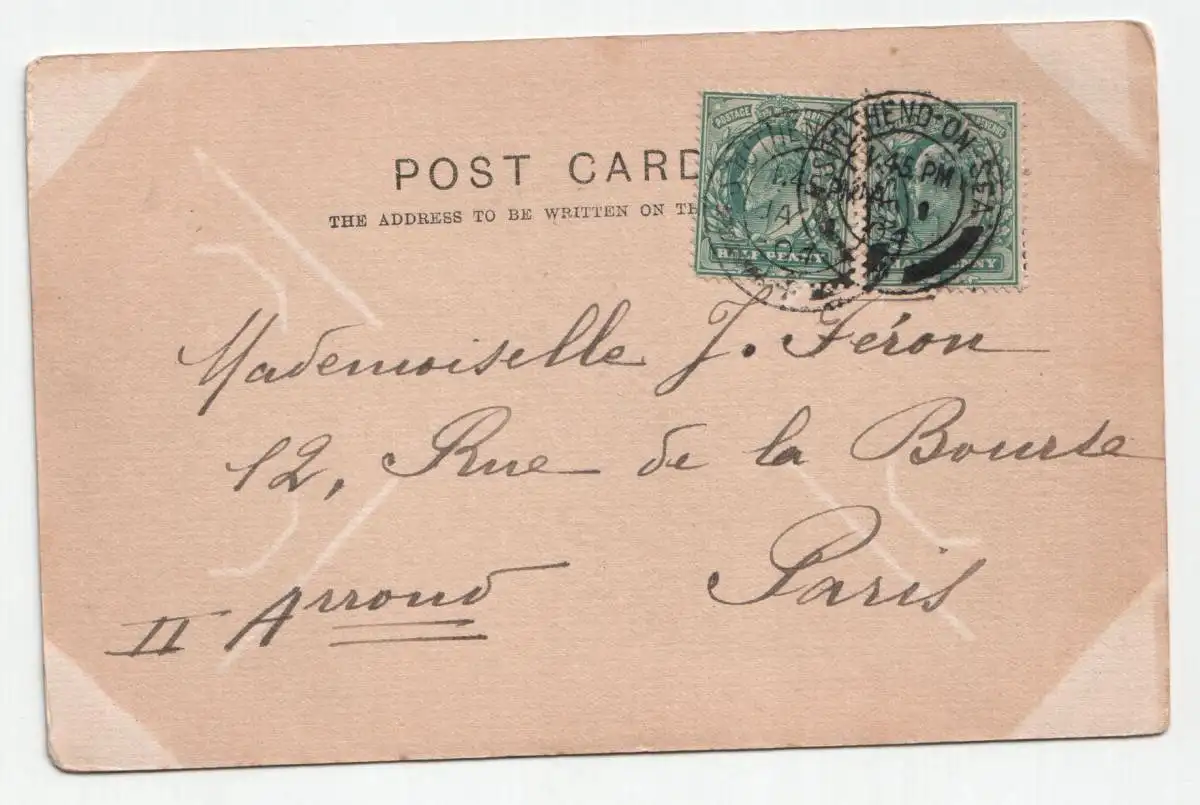 POST CARD
THE ADDRESS TO BE WRITTEN ON
POSTAGE
REVENUE
HALF PENNY
SOUTHEND-ON-SEA
45 PM
JA 1
04
Mademoiselle J. Féron
12, Rue de la Bourse
Paris
II Arrond